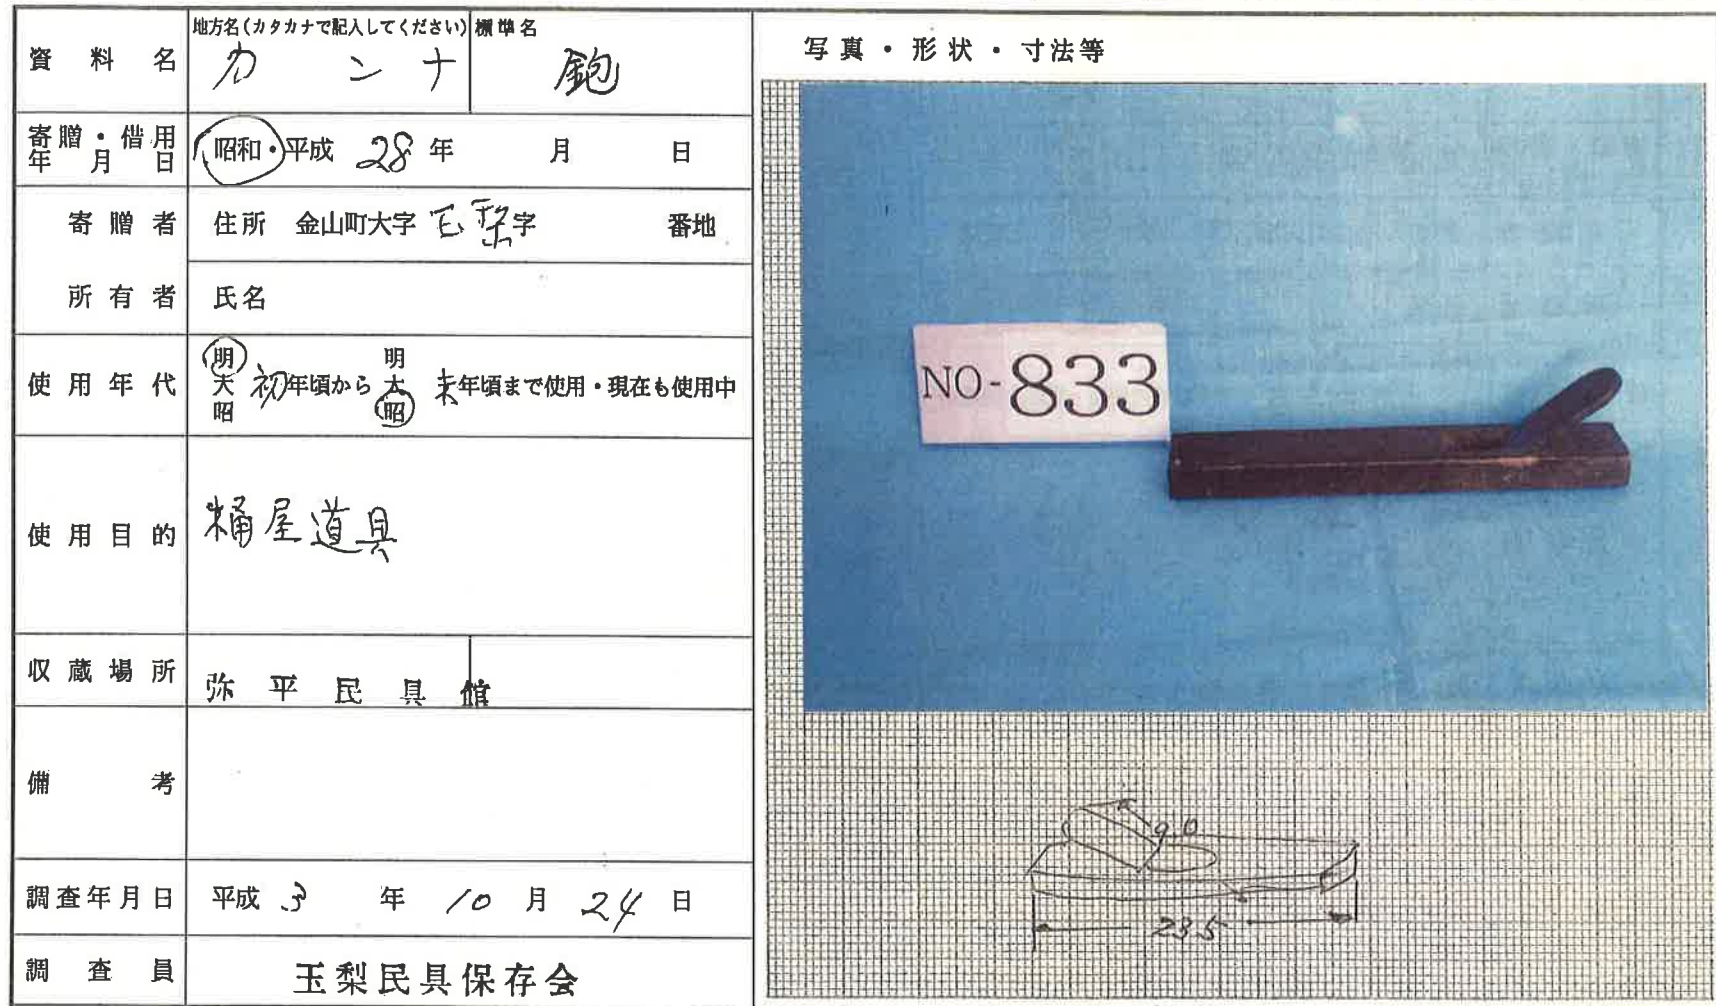 資料名
地方名(カタカナで記入してください)
カンナ
標準名
鉋
寄贈・借用年月日
昭和・平成 28年 月 日
寄贈者
住所 金山町大字玉梨字 番地
所有者
氏名
使用年代
明大昭 初年頃から 明大昭 末年頃まで使用・現在も使用中
使用目的
桶屋道具
収蔵場所
弥平民具館
備考
調査年月日
平成 3 年 10 月 24 日
調査員
玉梨民具保存会
写真・形状・寸法等
NO-833
9.0
23.5